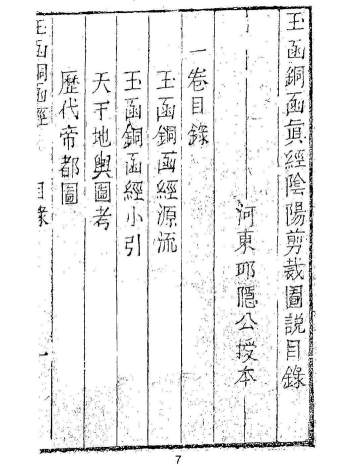 玉函銅函眞經陰陽剪裁圖說目錄
河東邱隱公授本
一卷目錄
玉函銅函經源流
玉函銅函經小引
天下地輿圖考
歷代帝都圖
玉函銅函經 目錄 一
7